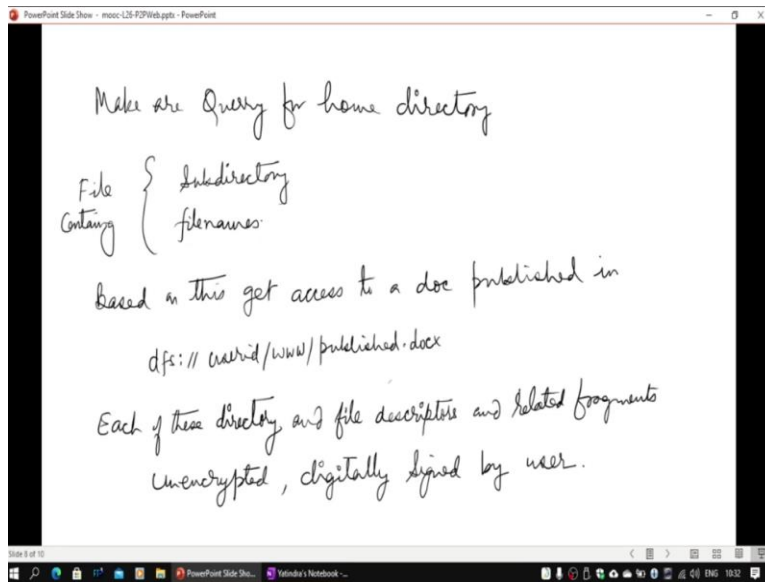 PowerPoint Slide Show - mooc-L26-P2PWeb.pptx - PowerPoint
Make are Query for home directory
File { Subdirectory
Containg filenames.
Based on this get access to a doc published in
dfs:// userid/www/published.docx
Each of these directory and file descriptors and related fragments
unencrypted, digitally signed by user.
Slide 8 of 10
PowerPoint Slide Sho... Yatindra's Notebook -... ENG 1032